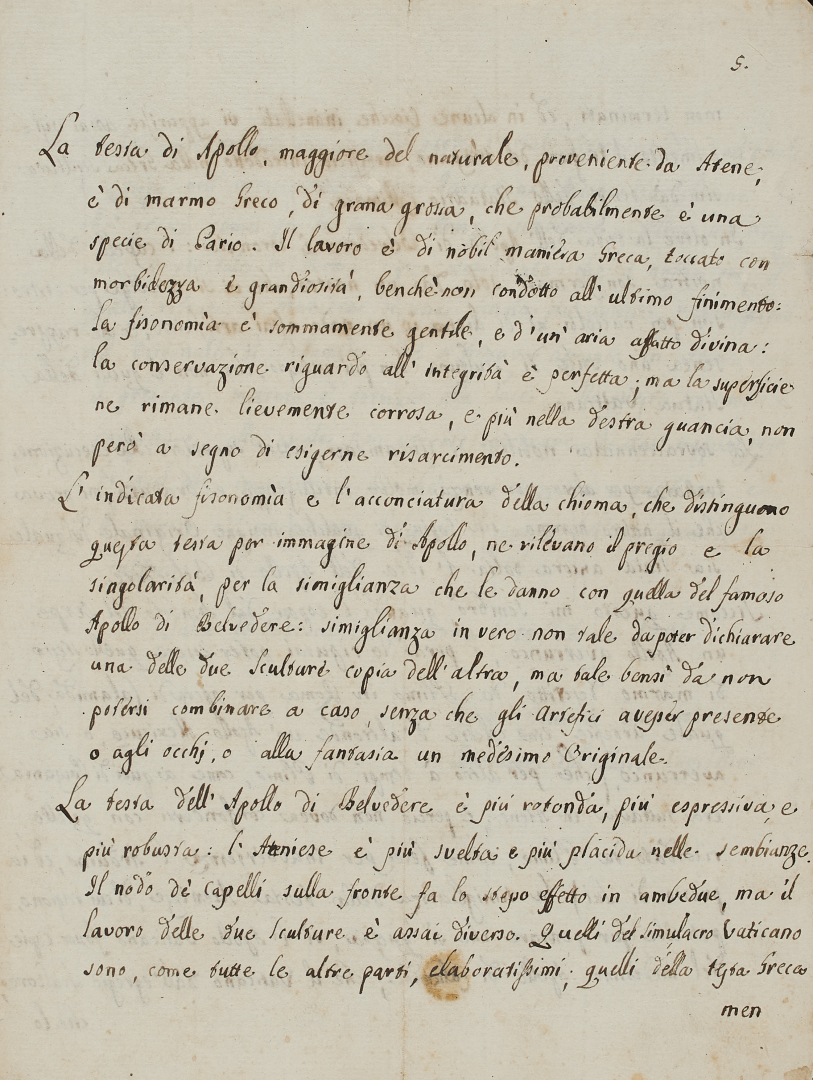 5.
La testa di Apollo, maggiore del naturale, proveniente da Atene,
è di marmo Greco, di grana grossa, che probabilmente è una
specie di Pario. Il lavoro è di nobil maniera Greca, toccato con
morbidezza e grandiosità, benchè non condotto all' ultimo finimento:
la fisonomìa è sommamente gentile, e d' un' aria affatto divina:
la conservazione riguardo all' integrità è perfetta; ma la superficie
ne rimane lievemente corrosa, e più nella destra guancia, non
però a segno di esigerne risarcimento.
L' indicata fisonomìa e l' acconciatura della chioma, che distinguono
questa testa per immagine di Apollo, ne rilèvano il pregio e la
singolarità, per la simiglianza che le danno con quella del famoso
Apollo di Belvedere: simiglianza in vero non tale da poter dichiarare
una delle due Sculture copia dell' altra, ma tale bensì da non
potersi combinare a caso, senza che gli Artefici avesser presente
o agli occhj, o alla fantasia un medesimo Originale.
La testa dell' Apollo di Belvedere è più rotonda, più espressiva, e
più robusta: l' Ateniese è più svelta e più placida nelle sembianze.
Il nodo de' capelli sulla fronte fa lo stesso effetto in ambedue, ma il
lavoro delle due Sculture è assai diverso. Quelli del simulacro Vaticano
sono, come tutte le altre parti, elaboratissimi; quelli della testa Greca
men